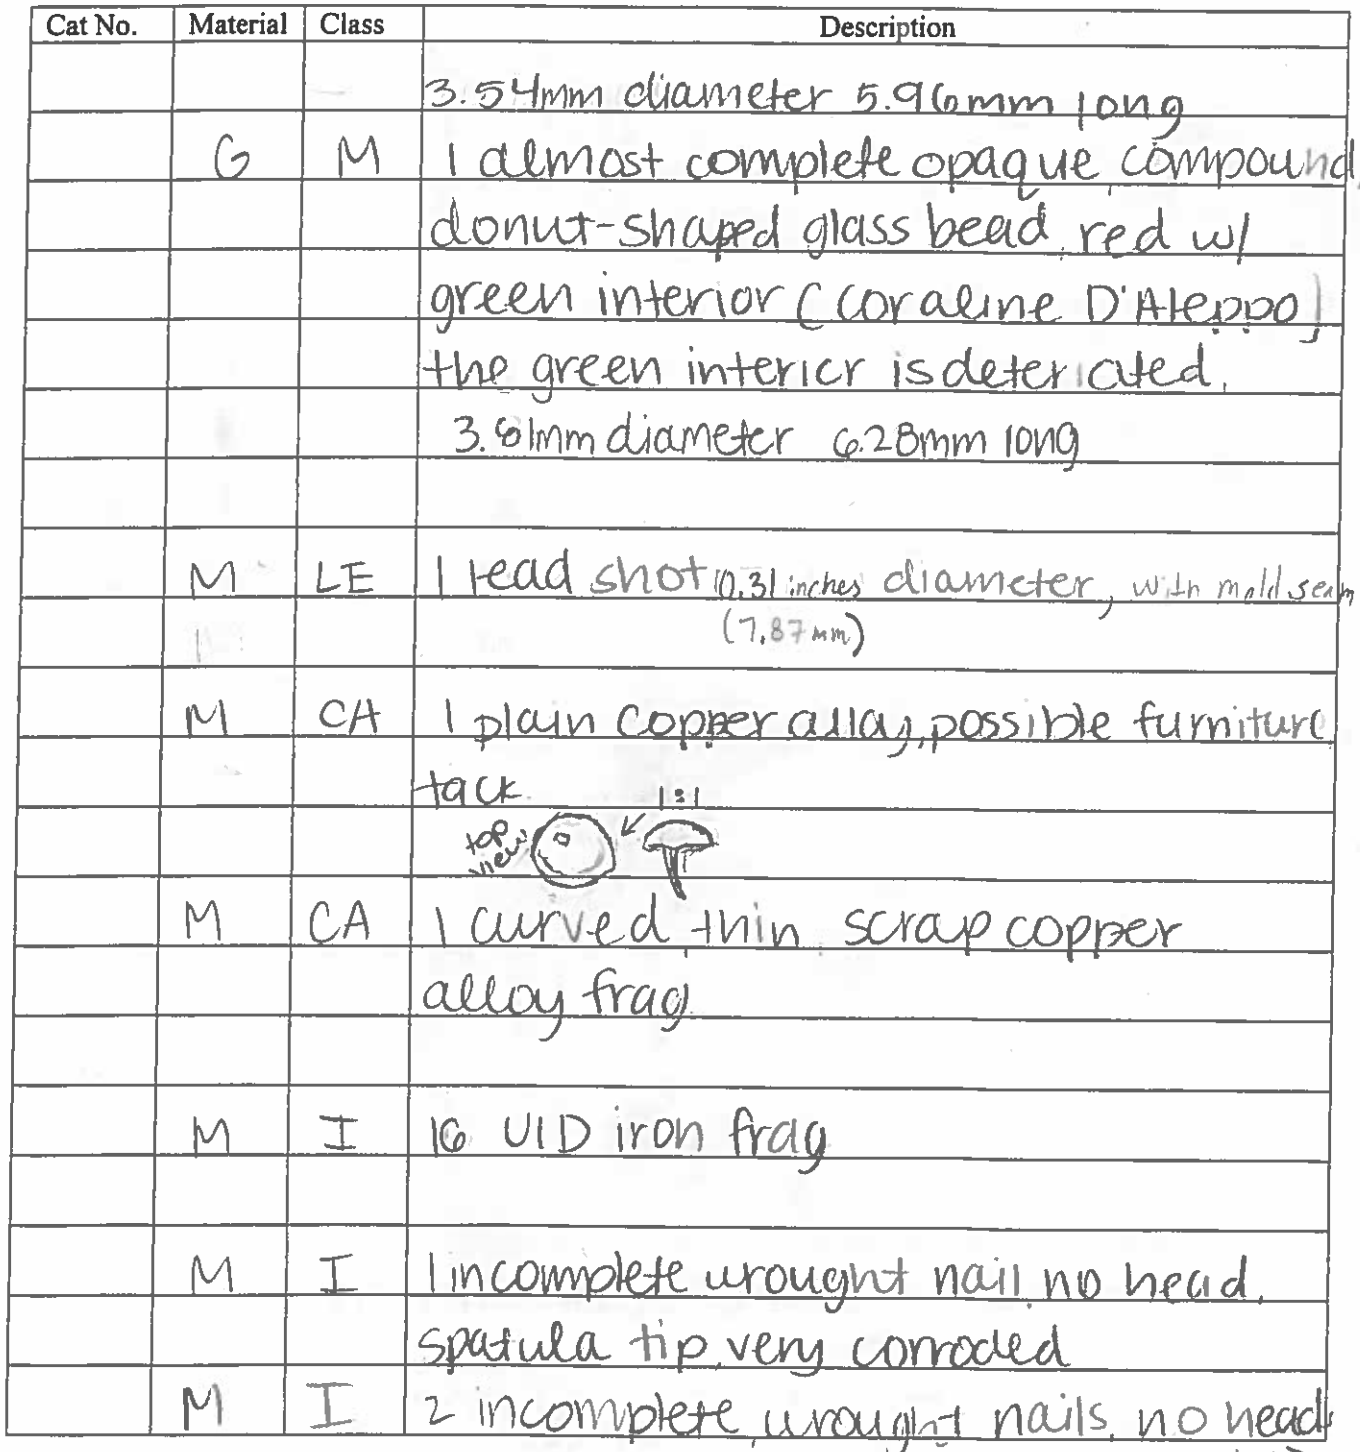 Cat No. Material Class Description
3.54mm diameter 5.96mm long
G M 1 almost complete opaque, compound,
donut-shaped glass bead, red w/
green interior (Coraline D'Aleppo)
the green interior is deteriated.
mm diameter 6.28mm long
M LE 1 lead shot 0.31 inches diameter, with mold seam
(7.87mm)
M CA 1 plain copper alloy, possible furniture
tack. 1:1
top
view
M CA 1 curved, thin, scrap copper
alloy frag
M I 16 UID iron frag
M I 1 incomplete wrought nail, no head,
spatula tip, very corroded
M I 2 incomplete, wrought nails, no heads